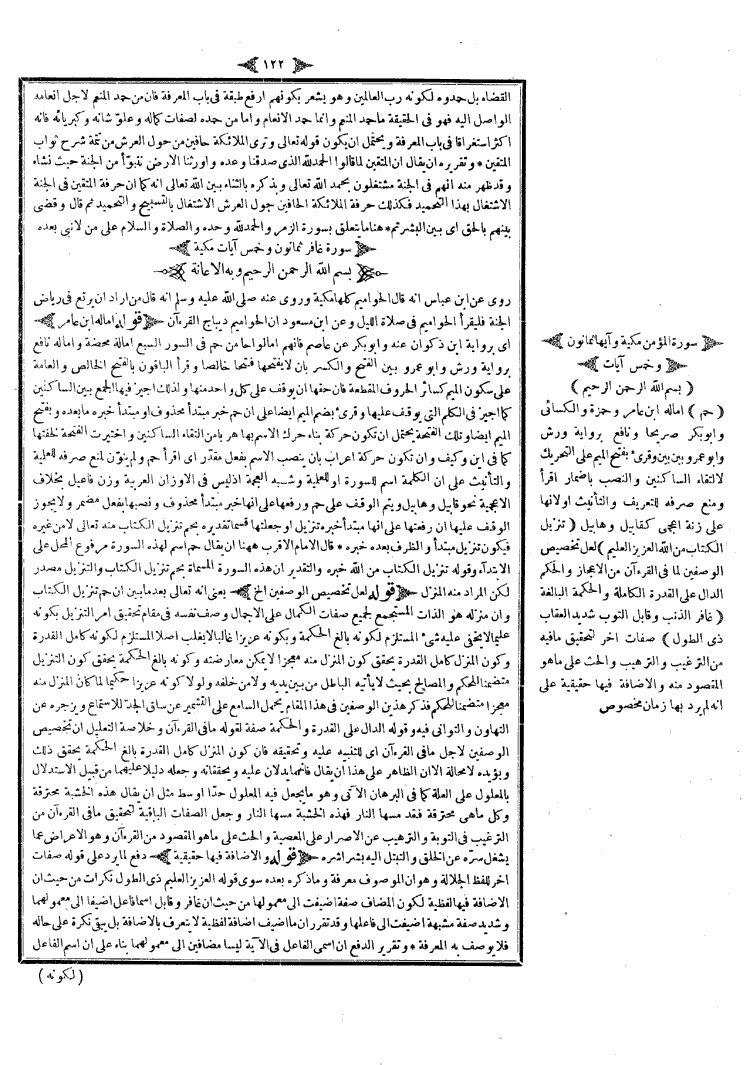 ١٢٢
القضاء بل حمدوه لكونه رب العالمين وهو يشعر بكونهم ارفع طبقة فى باب المعرفة فان من حمد المنعم لاجل انعامه
الواصل اليه فهو فى الحقيقة ماحمد المنعم وانما حمد الانعام واما من حمده لصفات كماله وعلو شانه وكبريائه فانه
اكثر استغراقا فى باب المعرفة ويحتمل ان يكون قوله تعالى وترى الملائكة حافين من حول العرش من تتمة شرح ثواب
المتقين * وتقريره ان يقال ان المتقين لما قالوا الحمدلله الذى صدقنا وعده واورثنا الارض نتبوأ من الجنة حيث نشاء
وقد ظهر منه انهم فى الجنة مشتغلون بحمد الله تعالى وبذكره بالثناء بين الله تعالى انه كما ان حرفة المتقين فى الجنة
الاشتغال بهذا التحميد فكذلك حرفة الملائكة الحافين حول العرش الاشتغال بالتسبيح والتحميد ثم قال وقضى
بينهم بالحق اى بين البشر تم * هنا ما يتعلق بسورة الزمر والحمدلله وحده والصلاة والسلام على من لانبى بعده
سورة غافر ثمانون وخمس آيات مكية
بسم الله الرحمن الرحيم وبه الاعانة
روى عن ابن عباس انه قال الحواميم كلها مكية وروى عنه صلى الله عليه وسلم انه قال من اراد ان يرتع فى رياض
الجنة فليقرأ الحواميم فى صلاة الليل وعن ابن مسعود ان الحواميم ديباج القرءآن قوله اماله ابن عامر
اى برواية ابن ذكوان عنه وابوبكر عن عاصم فانهم امالوا حا من حم فى السور السبع امالة محضة واماله نافع
برواية ورش وابو عمرو بين الفتح والكسر بان لايفتحها فتحا خالصا وقرأ الباقون بالفتح الخالص والعامة
على سكون الميم كسائر الحروف المقطعة فان حقها ان يوقف على كل واحد منها ولذلك اجيز فيها الجمع بين الساكنين
كما اجيز فى الكلم التى يوقف عليها وقرئ بضم الميم ايضا على ان حم خبر مبتدأ محذوف او مبتدأ خبره مابعده وبفتح
الميم ايضا وتلك الفتحة يحتمل ان تكون حركة بناء حرك الاسم بها هربا من التقاء الساكنين واختيرت الفتحة لخفتها
كما فى ابن وكيف وان تكون حركة اعراب بان ينصب الاسم بفعل مقدر اى اقرأ حم ولم ينون لمنع صرفه للعلمية
والتأنيث على ان الكلمة اسم للسورة او للعلمية وشبه العجمة اذليس فى الاوزان العربية وزن فاعيل بخلاف
الاعجمية نحو قابيل وهابيل ويتم الوقف على حم ورفعها على انها خبر مبتدأ محذوف ونصبها بفعل مضمر ولايجوز
الوقف عليها ان رفعتها على انها مبتدأ خبره تنزيل او جعلتها قسما تقديره بحم تنزيل الكتاب منه تعالى لا من غيره
فيكون تنزيل مبتدأ والظرف بعده خبره * قال الامام الاقرب ههنا ان يقال حم اسم لهذه السورة مرفوع المحل على
الابتدآء وقوله تنزيل الكتاب من الله خبره والتقدير ان هذه السورة المسماة بحم تنزيل الكتاب والتنزيل مصدر
لكن المراد منه المنزل قوله لعل تخصيص الوصفين الخ يعنى انه تعالى بعد ما بين ان حم تنزيل الكتاب
وان منزله هو الذات المستجمع لجميع صفات الكمال على الاجمال وصف نفسه فى مقام تحقيق امر التنزيل بكونه
عليما لايخفى عليه شئ المستلزم لكونه بالغ الحكمة وبكونه عزيزا غالبا لايغلب اصلا المستلزم لكونه كامل القدرة
وكون المنزل كامل القدرة يحقق كون المنزل منه معجزا لايمكن معارضته وكونه بالغ الحكمة يحقق كون التنزيل
متضمنا للحكم والمصالح بحيث لايأتيه الباطل من بين يديه ولا من خلفه ولولا كونه عزيزا حكيما لما كان المنزل منه
معجزا متضمنا للحكم فذكر هذين الوصفين فى هذا المقام يحمل السامع على التشمير عن ساق الجد للاستماع ويزجره عن
التهاون والتوانى فيه وقوله الدال على القدرة والحكمة صفة لقوله مافى القرءآن وخلاصة التعليل ان تخصيص
الوصفين لاجل مافى القرءآن اى للتنبيه عليه وتحقيقه فان كون المنزل كامل القدرة بالغ الحكمة يحقق ذلك
ويؤيده لامحالة الا ان الظاهر على هذا ان يقال فانهما يدلان عليه ويحققانه وجعله دليلا عليهما من قبيل الاستدلال
بالمعلول على العلة كما فى البرهان الآتى وهو ما يجعل فيه المعلول حدا اوسط مثل ان يقال هذه الخشبة محترقة
وكل ماهى محترقة فقد مسها النار فهذه الخشبة مسها النار وجعل الصفات الباقية لتحقيق مافى القرءآن من
الترغيب فى التوبة والترهيب عن الاصرار على المعصية والحث على ماهو المقصود من القرءآن وهو الاعراض عما
يشغل سره عن الخلق والتبتل اليه بشراشره قوله والاضافة فيها حقيقية دفع لما يرد على قوله صفات
اخر للفظ الجلالة وهو ان الموصوف معرفة وما ذكره بعده سوى قوله العزيز العليم ذى الطول نكرات من حيث ان
الاضافة فيها لفظية لكون المضاف صفة اضيفت الى معمولها من حيث ان غافر وقابل اسما فاعل اضيفا الى معمولهما
وشديد صفة مشبهة اضيفت الى فاعلها وقد تقرر ان ما اضيف اضافة لفظية لايتعرف بالاضافة بل يبقى نكرة على حاله
فلا يوصف به المعرفة * وتقرير الدفع ان اسمى الفاعل فى الآية ليسا مضافين الى معمولهما بناء على ان اسم الفاعل
( لكونه )
سورة المؤمن مكية وآيها ثمانون
وخمس آيات
( بسم الله الرحمن الرحيم )
( حم ) اماله ابن عامر وحمزة والكسائى
وابوبكر صريحا ونافع برواية ورش
وابو عمرو بين بين وقرئ بفتح الميم على التحريك
لالتقاء الساكنين والنصب باضمار اقرأ
ومنع صرفه للتعريف والتأنيث اولانها
على زنة اعجمى كقابيل وهابيل ( تنزيل
الكتاب من الله العزيز العليم ) لعل تخصيص
الوصفين لما فى القرءآن من الاعجاز والحكم
الدال على القدرة الكاملة والحكمة البالغة
( غافر الذنب وقابل التوب شديد العقاب
ذى الطول ) صفات اخر لتحقيق مافيه
من الترغيب والترهيب والحث على ماهو
المقصود منه والاضافة فيها حقيقية على
انه لم يرد بها زمان مخصوص